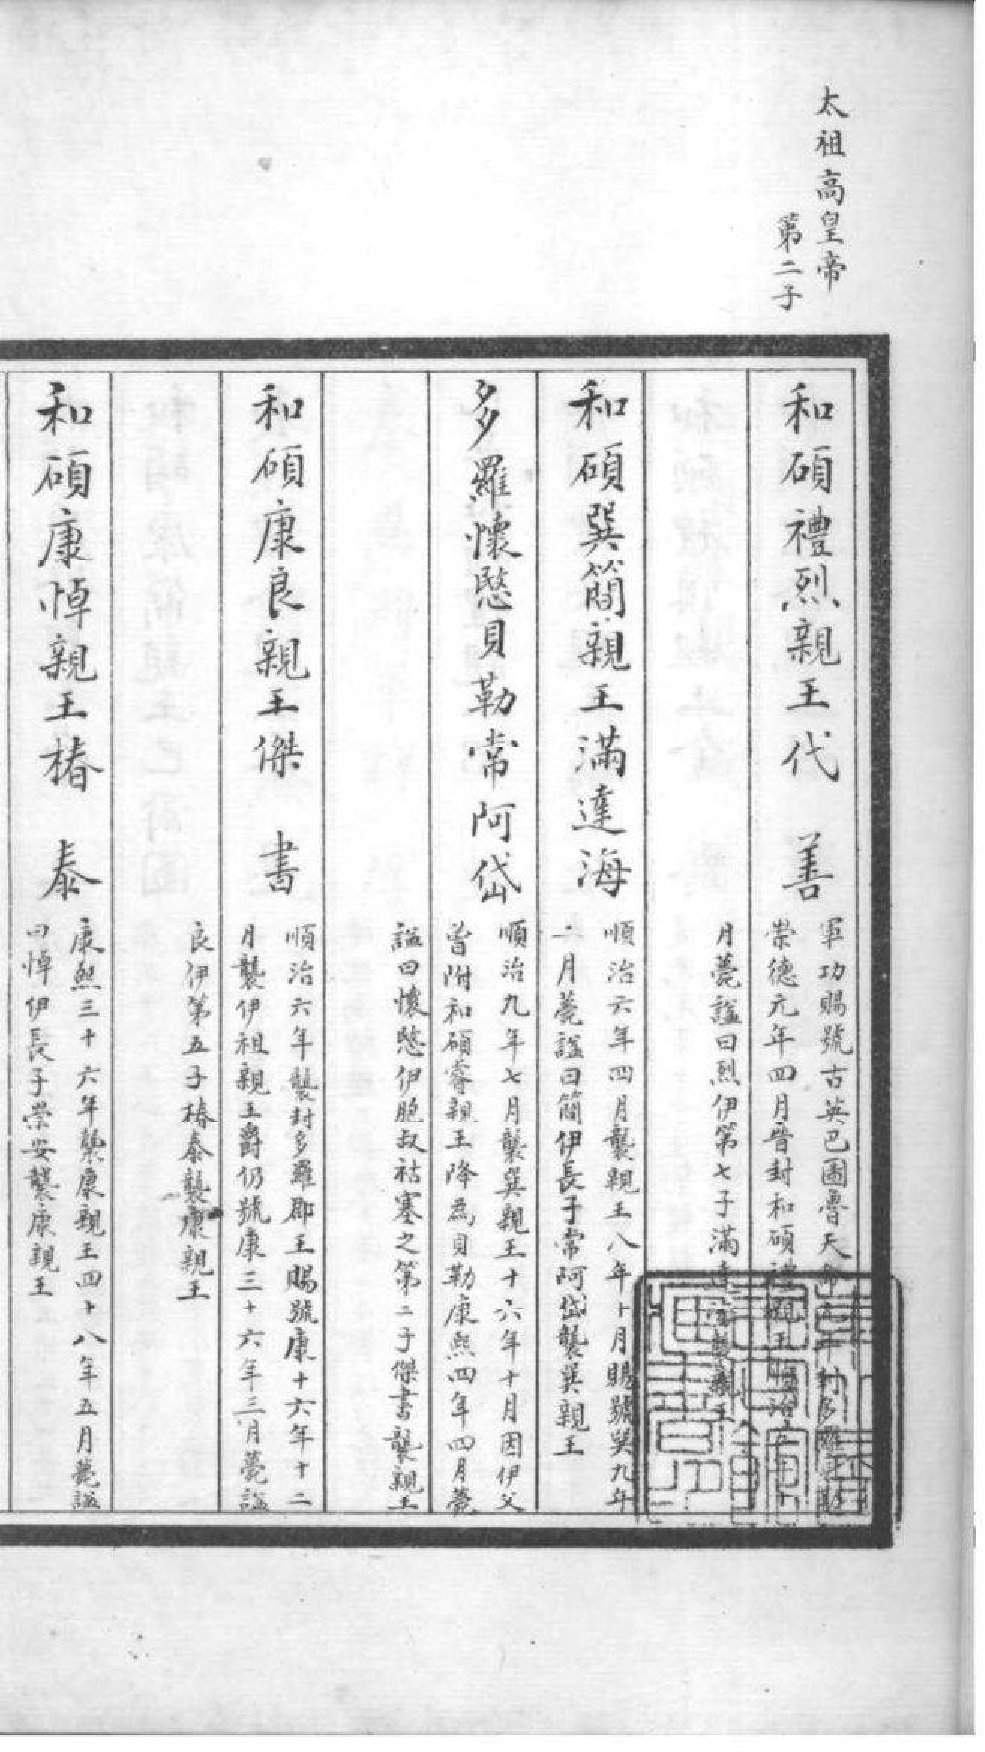 太祖高皇帝
第二子
和碩禮烈親王代善
軍功賜號古英巴圖魯天
崇德元年四月晉封和碩禮親王順治
月薨諡曰烈伊第七子滿達海襲親王
和碩巽簡親王滿達海
順治六年四月襲親王八年十月賜號巽九年
一月薨諡曰簡伊長子常阿岱襲巽親王
多羅懷愍貝勒常阿岱
順治九年七月襲巽親王十六年十月因伊父
曾附和碩睿親王降為貝勒康熙四年四月薨
諡曰懷愍伊胞叔祜塞之第二子傑書襲親王
和碩康良親王傑書
順治六年襲封多羅郡王賜號康十六年十二
月襲伊祖親王爵仍號康三十六年三月薨諡
良伊第五子椿泰襲康親王
和碩康悼親王椿泰
康熙三十六年襲康親王四十八年五月薨諡
曰悼伊長子崇安襲康親王